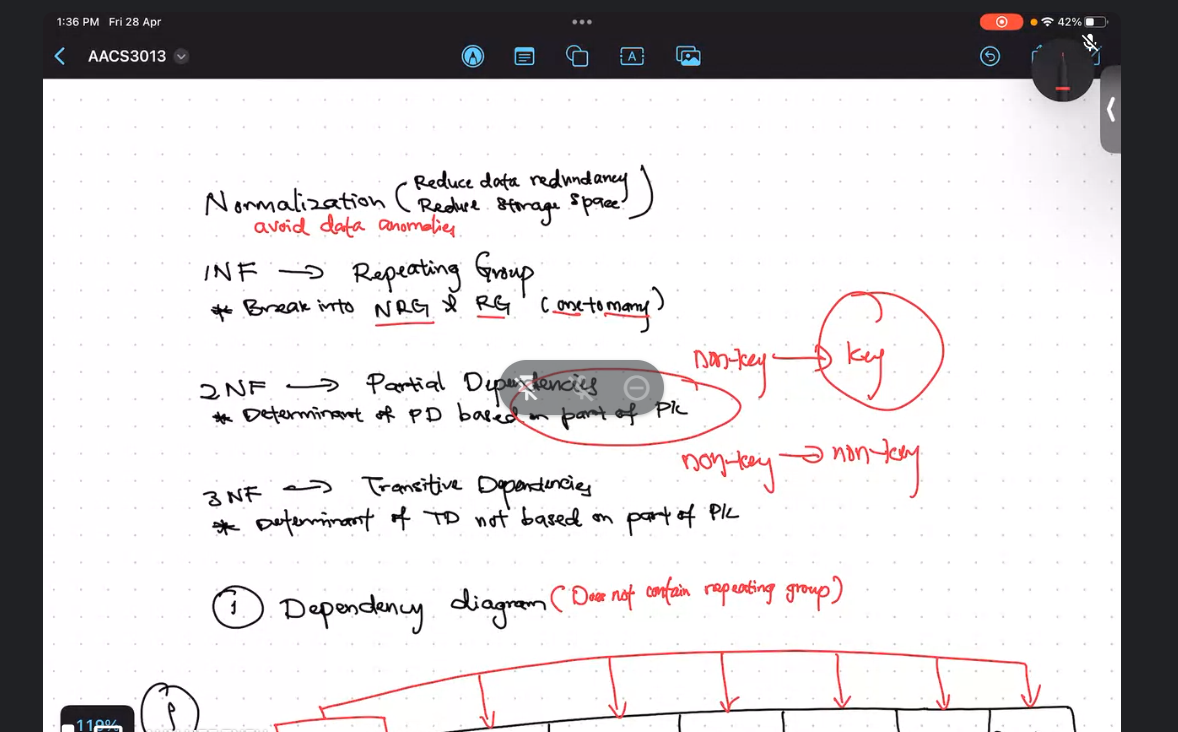 1:36 PM Fri 28 Apr
42%
AACS3013
Normalization (Reduce data redundancy
Reduce storage space)
avoid data anomalies
1NF → Repeating Group
* Break into NRG & RG (one to many)
non-key → key
2NF → Partial Dependencies
* Determinant of PD based on part of PK
non-key → non-key
3NF → Transitive Dependencies
* Determinant of TD not based on part of PK
1 Dependency diagram (Does not contain repeating group)
P
110%